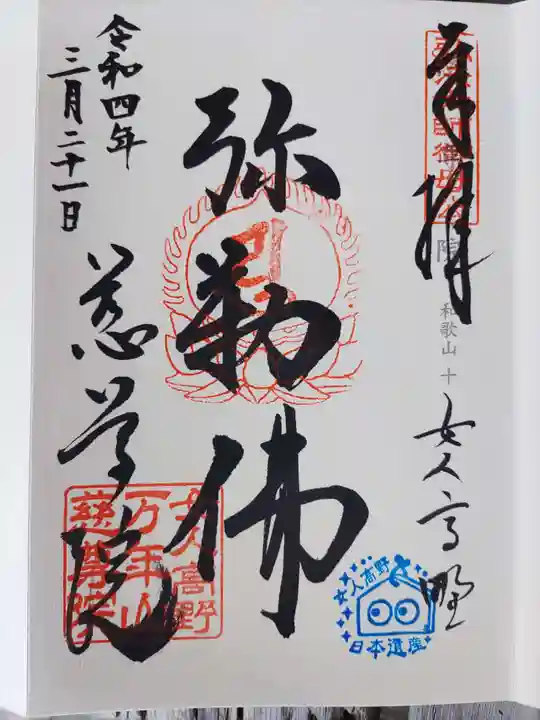 奉拝
院 和歌山十
女人高野
弥勒佛
令和四年
三月二十一日
慈尊院
女人高野
万年山
慈尊院
女人高野
日本遺産